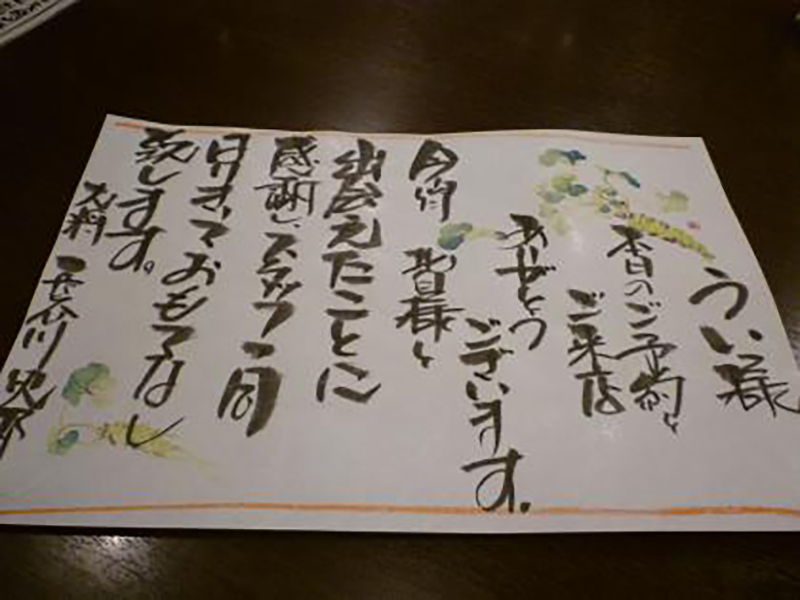 うい様
本日のご予約と
ご来店
ありがとう
ございます。
今宵
皆様と
出会えたことに
感謝し、スタッフ一同
はりきっておもてなし
致します。
長谷川